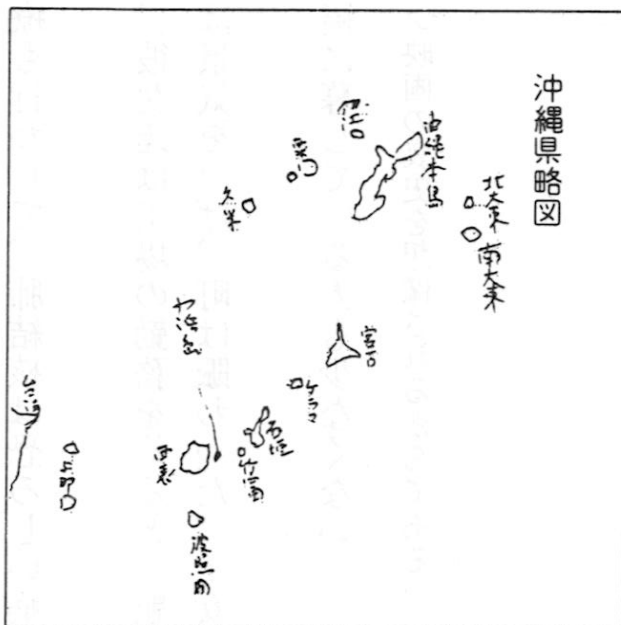 沖縄県略図
北大東
南大東
沖縄本島
粟口
久米
宮古
ケラマ
石垣
竹富
西表
波照間
台湾